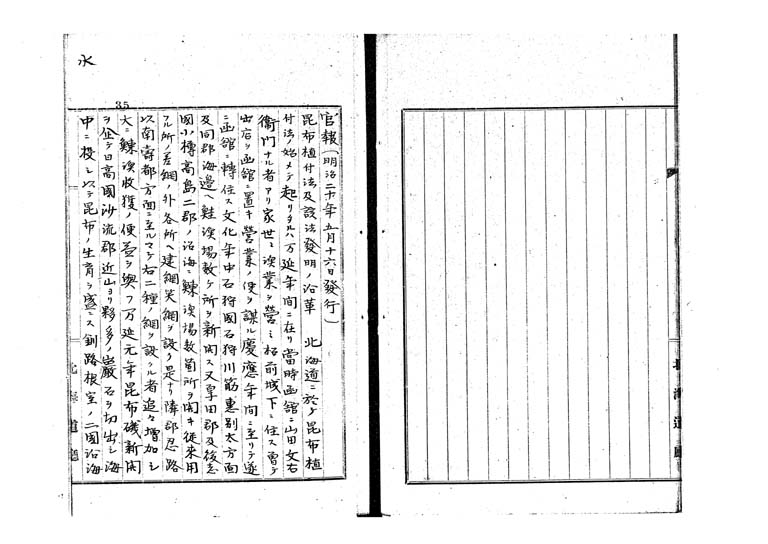 官報(明治二十年五月十六日發行)
昆布植付法及該法發明ノ沿革 北海道ニ於テ昆布植
付法ノ始メテ起リタルハ万延年間ニ在リ當時函舘ニ山田文右
衞門ナル者アリ家世ニ漁業ヲ營ミ松前城下ニ住ス曽テ
出店ヲ函舘ニ置キ營業ノ便ヲ謀ル慶應年間ニ至リテ遂
ニ函舘ニ轉住ス文化年中石狩國石狩川筋惠別太方面
及同郡海邊ヘ鮭漁場數ケ所ヲ新開ス又厚田郡及後志
國小樽高島二郡ノ沿海ニ鰊漁場數箇所ヲ開キ從來用
フル所ノ差網ノ外各所ヘ建網笊網ヲ設ク是ヨリ隣郡忍路
以南壽都方面ニ至ルマテ右二種ノ網ヲ設クル者追々增加シ
大ニ鰊漁收獲ノ便益ヲ與フ万延元年昆布礒新開
ヲ企テ日高國沙流郡近山ヨリ夥多ノ巖石ヲ切出シ海
中ニ投シ以テ昆布ノ生育ヲ盛ニス釧路根室ノ二國沿海
水
35
北海道廳
北海道廳